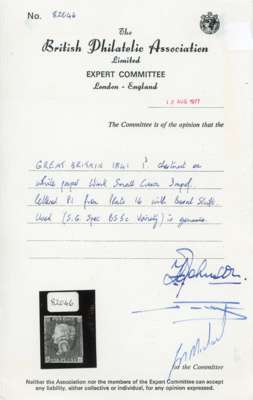 No. 82046
The
British Philatelic Association
Limited
EXPERT COMMITTEE
London - England
12 AUG 1977
The Committee is of the opinion that the
GREAT BRITAIN 1841 1d
white paper Wmk Small Crown Imperf.
lettered from Plate 16 with
Used (S.G. Spec BS5c Variety) is genuine.
82046
for the Committee
Neither the Association nor the members of the Expert Committee can accept
any liability, either collective or individual, for any opinion expressed.